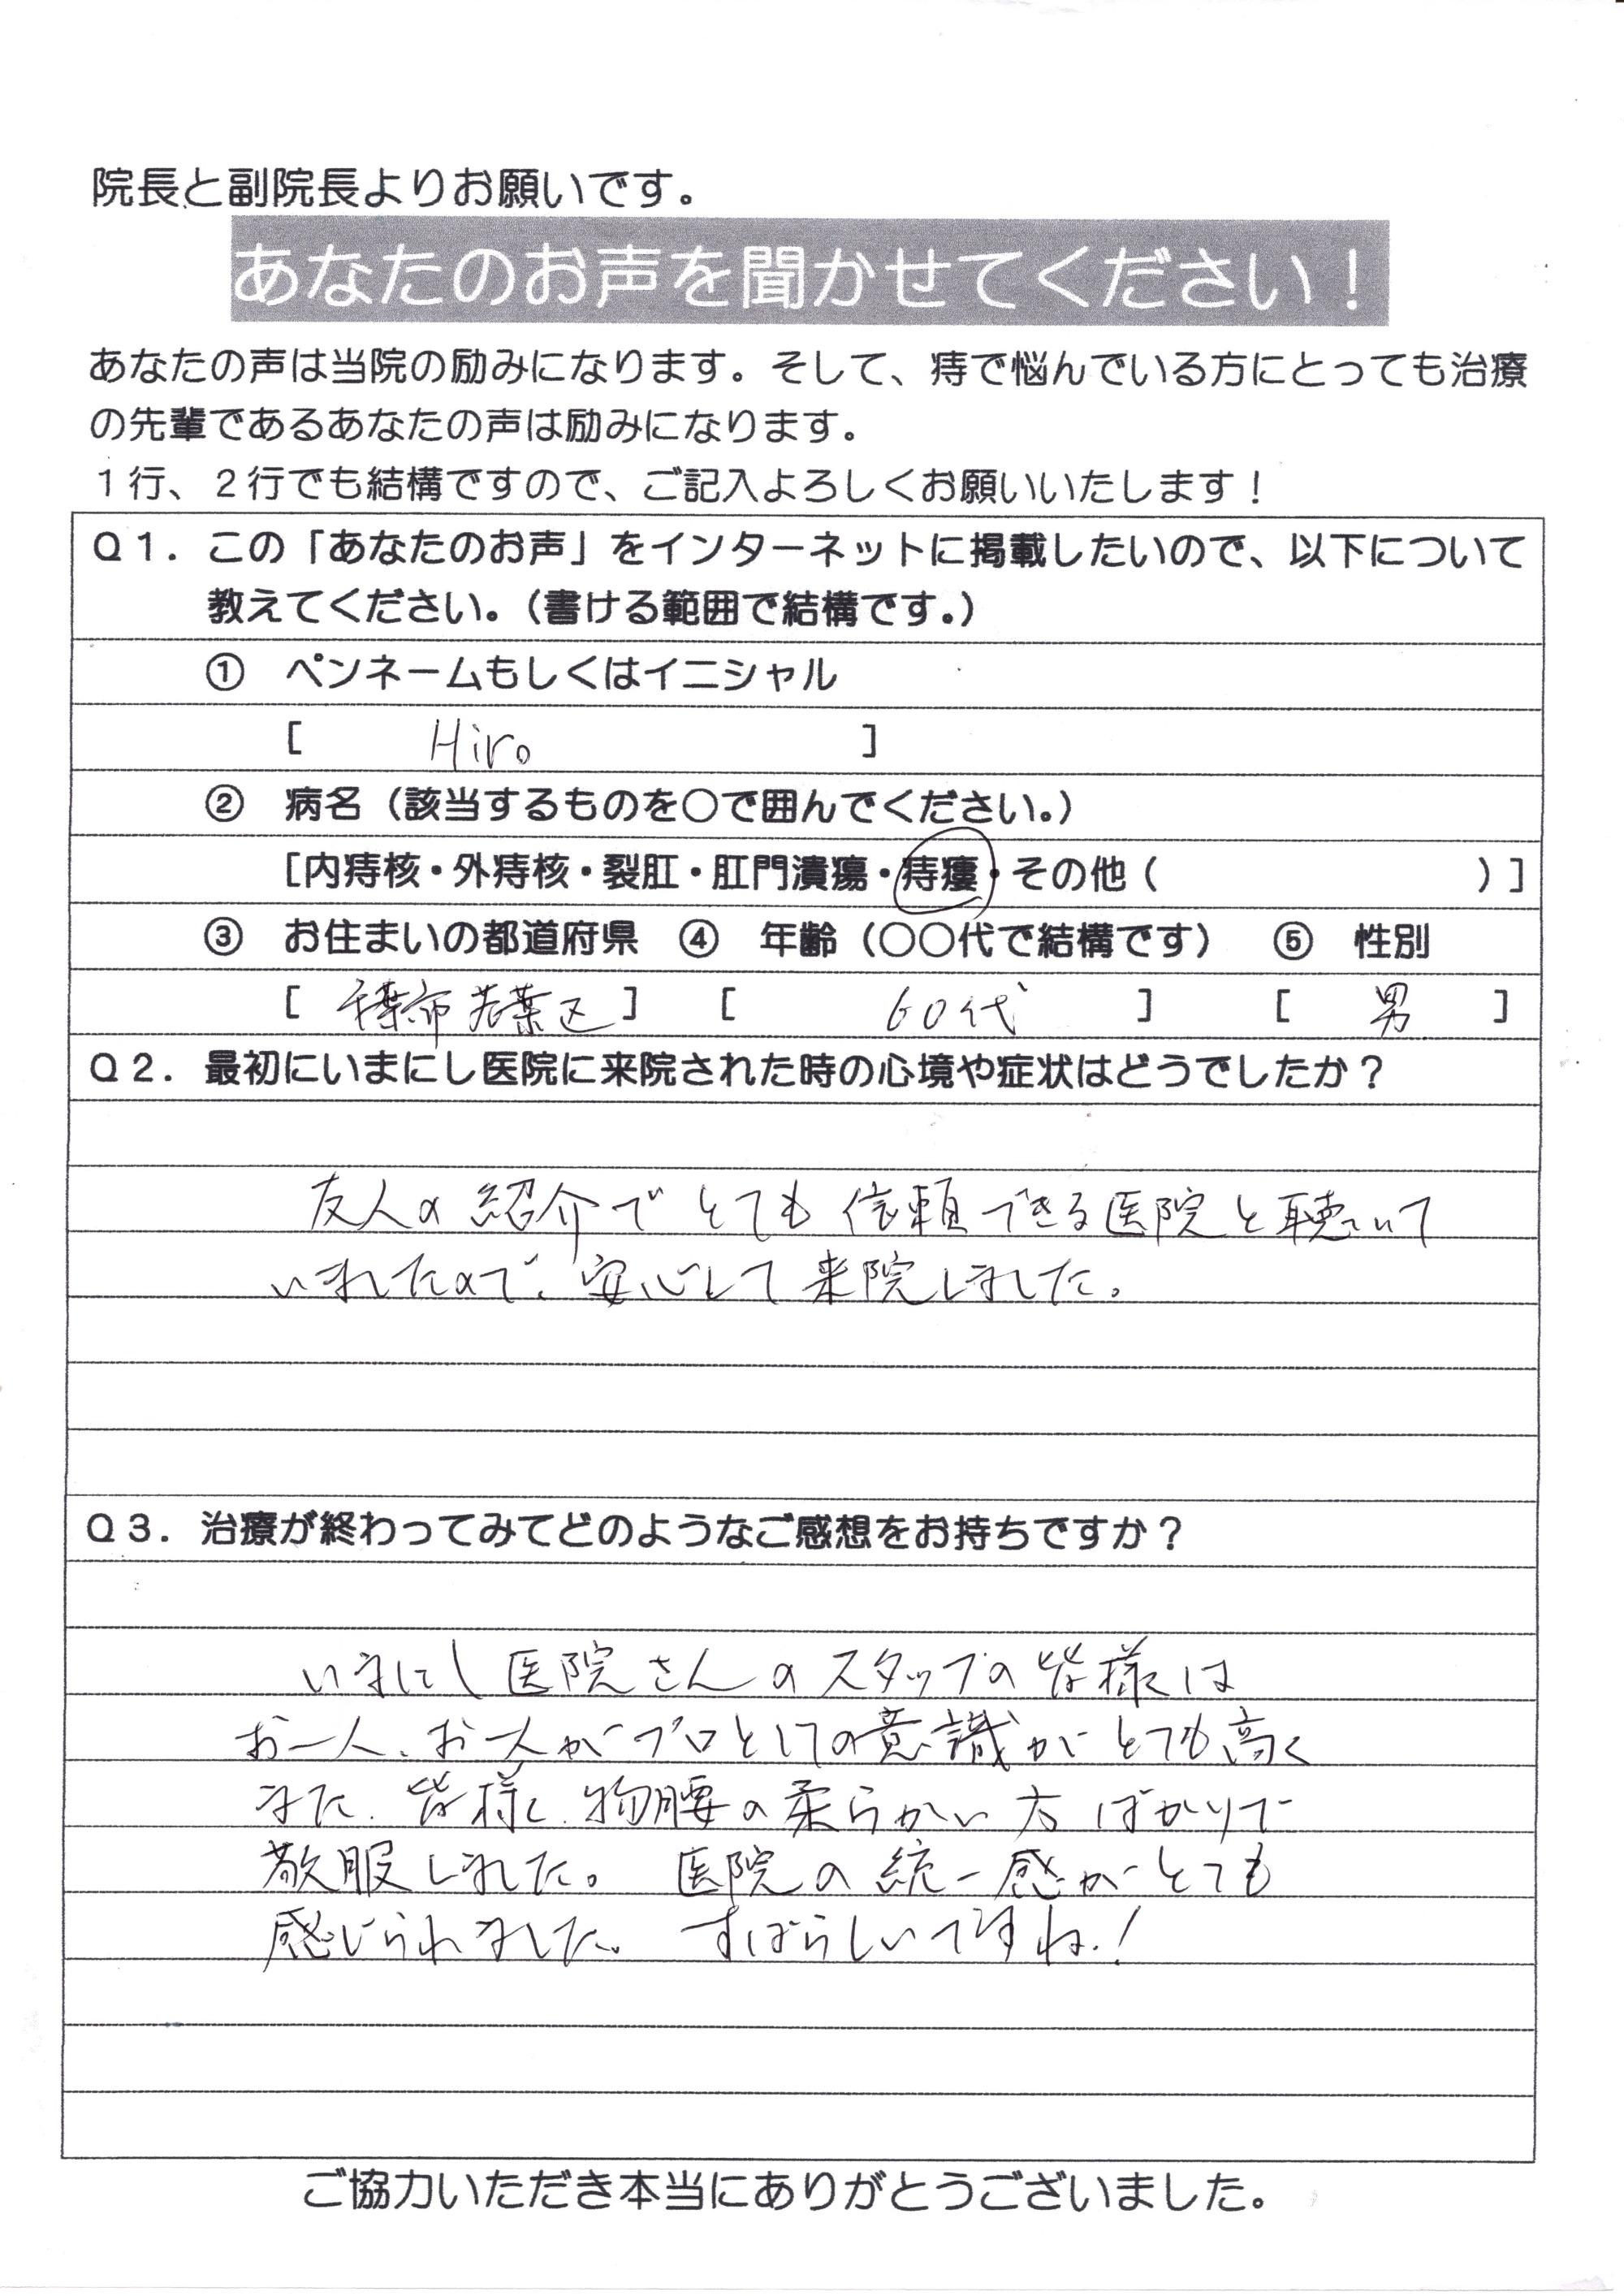 院長と副院長よりお願いです。
あなたのお声を聞かせてください！
あなたの声は当院の励みになります。そして、痔で悩んでいる方にとっても治療
の先輩であるあなたの声は励みになります。
１行、２行でも結構ですので、ご記入よろしくお願いいたします！
Ｑ１．この「あなたのお声」をインターネットに掲載したいので、以下について
教えてください。（書ける範囲で結構です。）
① ペンネームもしくはイニシャル
[ Hiro ]
② 病名（該当するものを○で囲んでください。）
[内痔核・外痔核・裂肛・肛門潰瘍・痔瘻・その他（ ）]
③ お住まいの都道府県 ④ 年齢（○○代で結構です） ⑤ 性別
[ 千葉市若葉区 ] [ 60代 ] [ 男 ]
Ｑ２．最初にいまにし医院に来院された時の心境や症状はどうでしたか？
友人の紹介でとても信頼できる医院と聴いて
いましたので、安心して来院しました。
Ｑ３．治療が終わってみてどのようなご感想をお持ちですか？
いまにし医院さんのスタッフの皆様は
お一人、お一人がプロとしての意識がとても高く
また、皆様、物腰の柔らかい方ばかりで
敬服しました。医院の統一感がとても
感じられました。すばらしいですね！
ご協力いただき本当にありがとうございました。